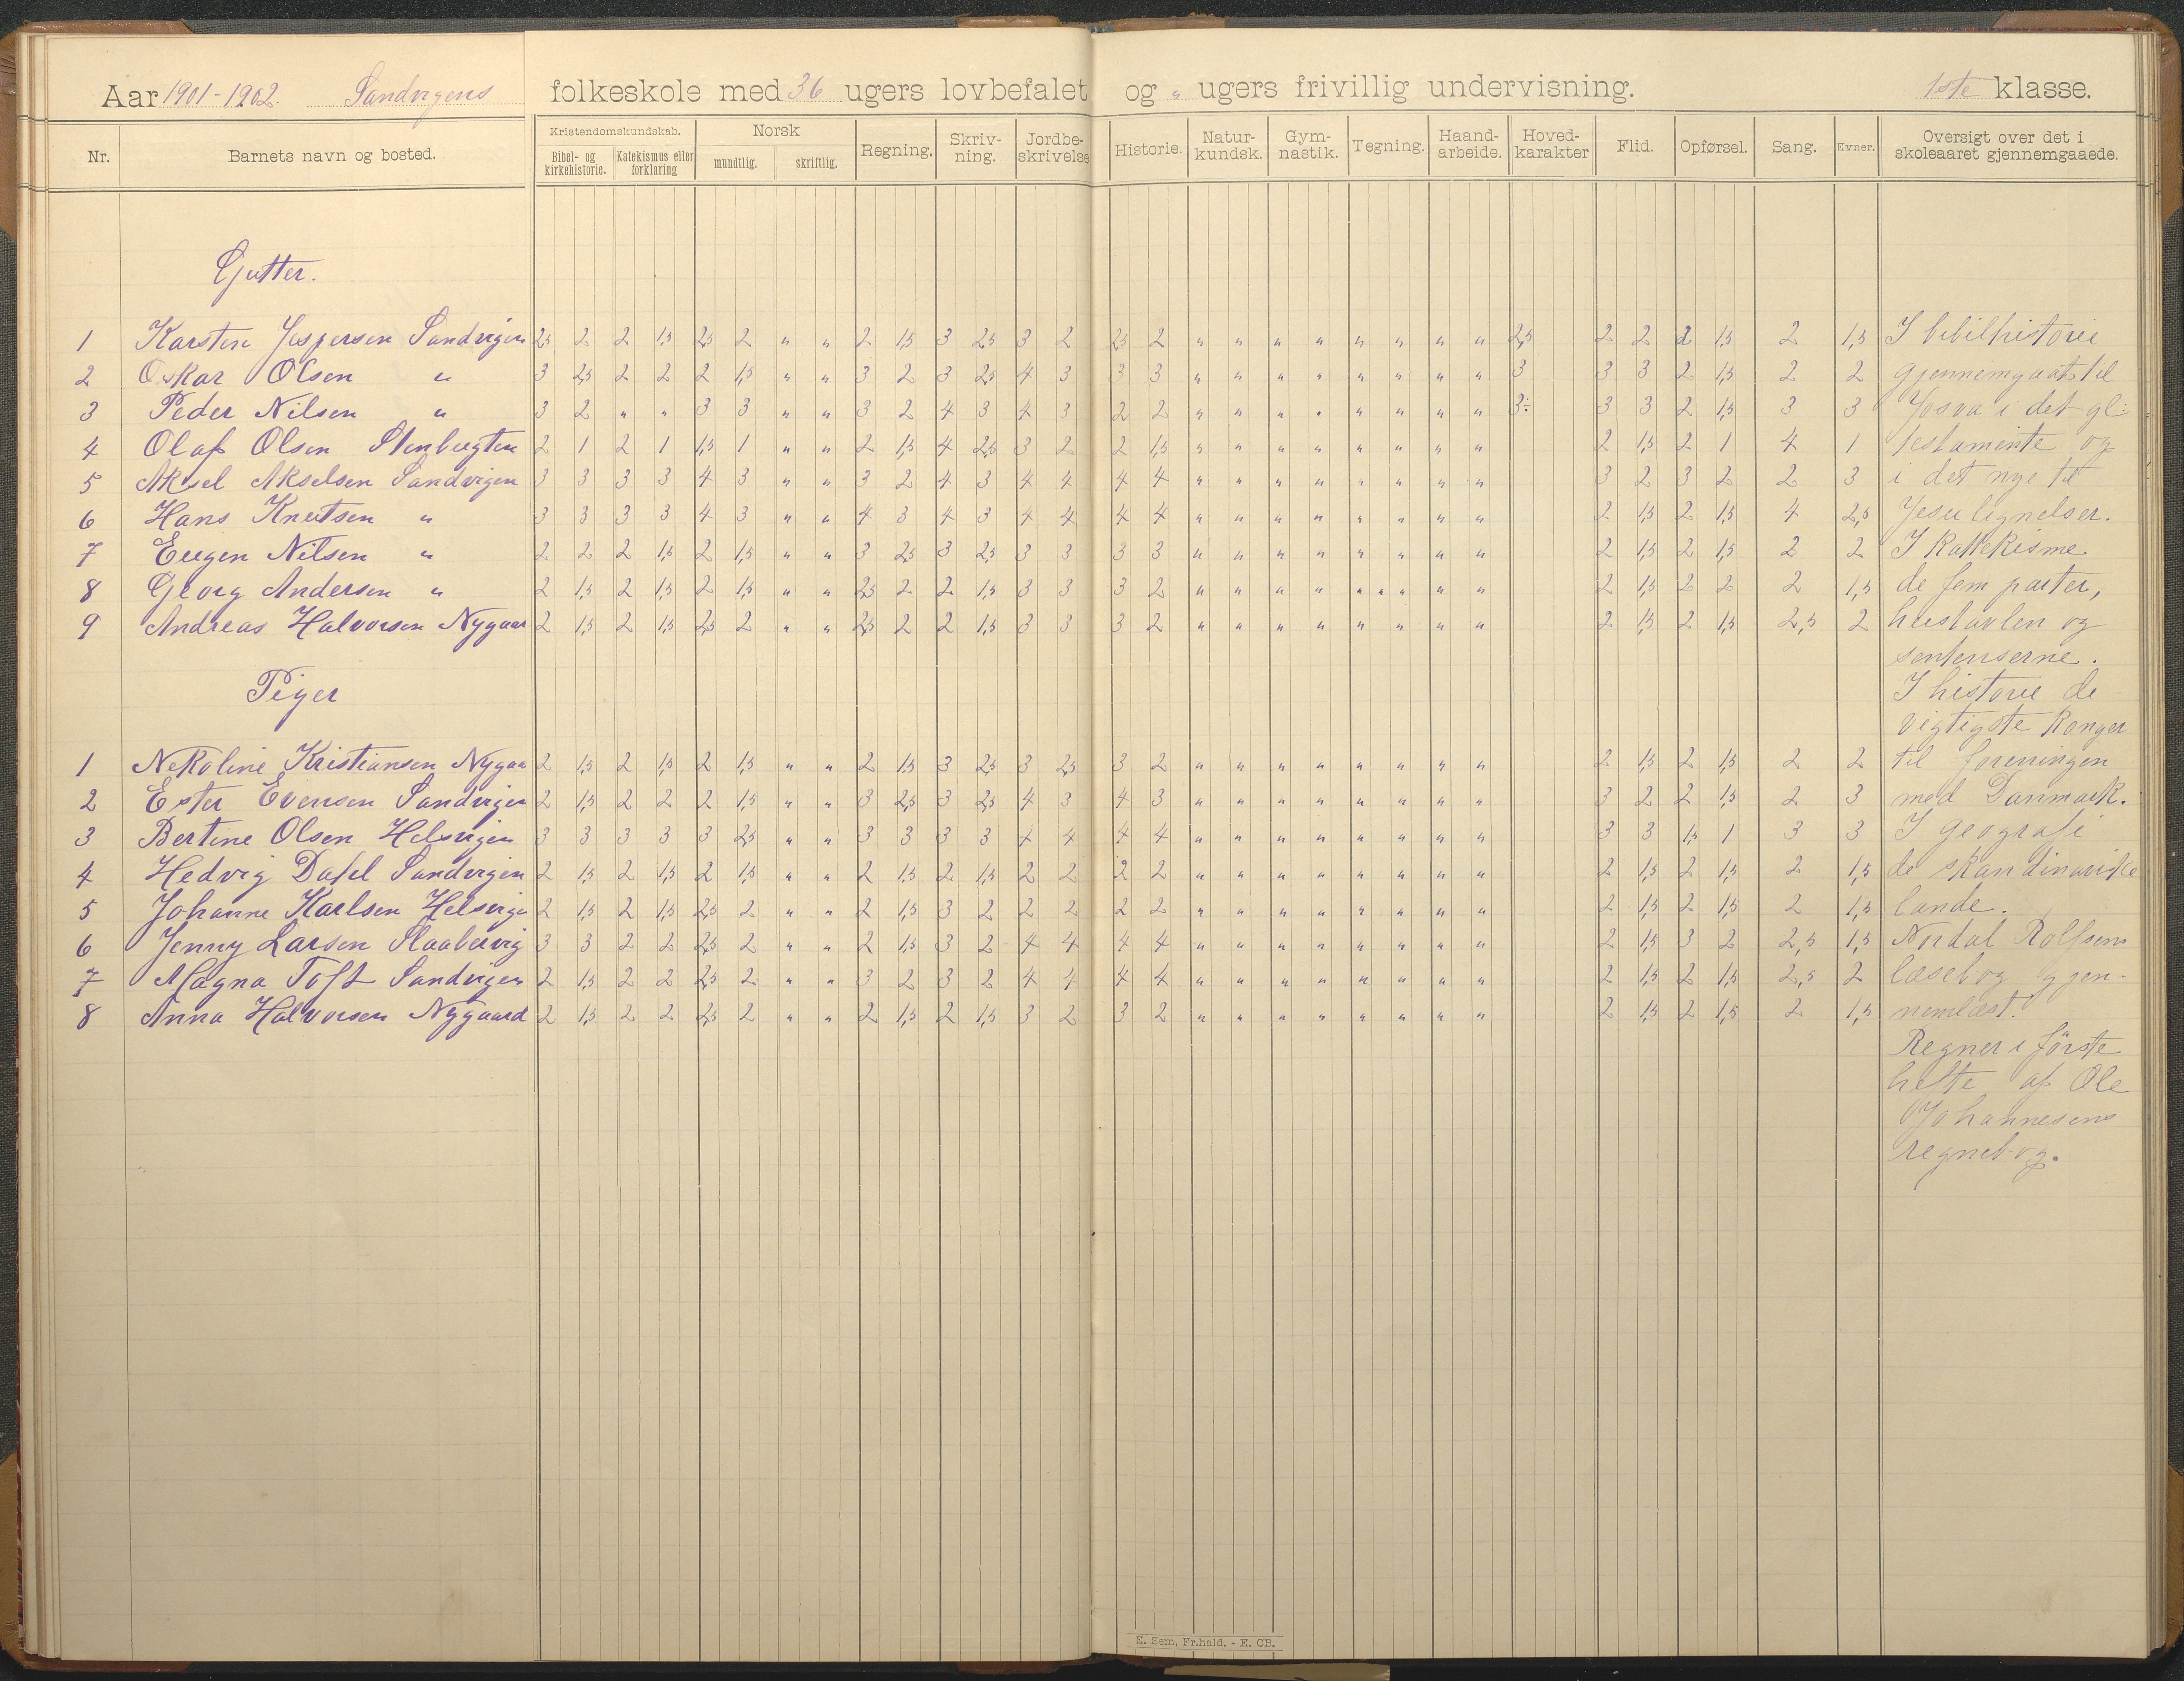 Aar 1901-1902. Sandvigens folkeskole med 36 ugers lovbefalet og " ugers frivillig undervisning. 1ste klasse.
Nr. Barnets navn og bosted. Kristendomskundskab. Bibel- og kirkehistorie. Katekismus eller forklaring Norsk mundtlig. skriftlig. Regning. Skriv-ning. Jordbe-skrivelse Historie. Natur-kundsk. Gym-nastik. Tegning. Haand-arbeide. Hoved-karakter Flid. Opførsel. Sang. Evner. Oversigt over det i skoleaaret gjennemgaaede.
Gutter.
1 Karsten Jespersen Sandvigen 2,5 2 2 1,5 2,5 2 " " 2 1,5 3 2,5 3 2 2,5 2 " " " " " " " " 2,5 2 2 2 1,5 2 1,5 I bibilhistorie
2 Oskar Olsen " 3 2,5 2 2 2 1,5 " " 3 2 3 2,5 4 3 3 3 " " " " " " " " 3 3 3 2 1,5 2 2 gjennemgaat til
3 Peder Nilsen " 3 2 " " 3 3 " " 3 2 4 3 4 3 2 2 " " " " " " " " 3÷ 3 3 2 1,5 3 3 Josva i det gl:
4 Olaf Olsen Stenbugten 2 1 2 1 1,5 1 " " 2 1,5 4 2,5 3 2 2 1,5 " " " " " " " " 2 1,5 2 1 4 1 testamente og
5 Aksel Akselsen Sandvigen 3 3 3 3 4 3 " " 3 2 4 3 4 4 4 4 " " " " " " " " 3 2 3 2 2 3 i det nye til
6 Hans Knutsen " 3 3 3 3 4 3 " " 4 3 4 3 4 4 4 4 " " " " " " " " 2 1,5 2 1,5 4 2,5 Jesu lignelser.
7 Eugen Nilsen " 2 2 2 1,5 2 1,5 " " 3 2,5 3 2,5 3 3 3 3 " " " " " " " " 2 1,5 2 1,5 2 2 I Katekisme
8 Georg Andersen " 2 1,5 2 1,5 2 1,5 " " 2,5 2 2 1,5 3 3 3 2 " " " " " " " " 2 1,5 2 2 2 1,5 de fem parter,
9 Andreas Halvorsen Nygaar 2 1,5 2 1,5 2,5 2 " " 2,5 2 2 1,5 3 3 3 2 " " " " " " " " 2 1,5 2 1,5 2,5 2 hustavlen og
sentenserne.
Piger I historie de
vigtigste Konger
1 Nekoline Kristiansen Nygaa 2 1,5 2 1,5 2 1,5 " " 2 1,5 3 2,5 3 2,5 3 2 " " " " " " " " 2 1,5 2 1,5 2 2 til foreningen
2 Ester Evensen Sandvigen 2 1,5 2 2 2 1,5 " " 3 2,5 3 2,5 4 3 4 3 " " " " " " " " 3 2 2 1,5 2 3 med Danmark.
3 Bertine Olsen Helsvigen 3 3 3 3 3 2,5 " " 3 3 3 3 4 4 4 4 " " " " " " " " 3 3 1,5 1 3 3 I geografi
4 Hedvig Dahl Sandvigen 2 1,5 2 1,5 2 1,5 " " 2 1,5 2 1,5 2 2 2 2 " " " " " " " " 2 1,5 2 1,5 2 1,5 de skandinaviske
5 Johanne Karlsen Helsvige 2 1,5 2 1,5 2,5 2 " " 2 1,5 3 2 2 2 2 2 " " " " " " " " 2 1,5 2 1,5 2 1,5 lande.
6 Jenny Larsen Staabervig 3 3 2 2 2,5 2 " " 2 1,5 3 2 4 4 4 4 " " " " " " " " 2 1,5 3 2 2,5 1,5 Nordal Rolfsens
7 Magna Toft Sandvigen 2 1,5 2 2 2,5 2 " " 3 2 3 2 4 4 4 4 " " " " " " " " 2 1,5 2 1,5 2,5 2 læsebog gjen-
8 Anna Halvorsen Nygaard 2 1,5 2 2 2,5 2 " " 2 1,5 2 1,5 3 2 3 2 " " " " " " " " 2 1,5 2 1,5 2 1,5 nemlæst.
Regner i første
hefte af Ole
Johannesens
regnebog.
E. Sem, Fr.hald. - E. CB.